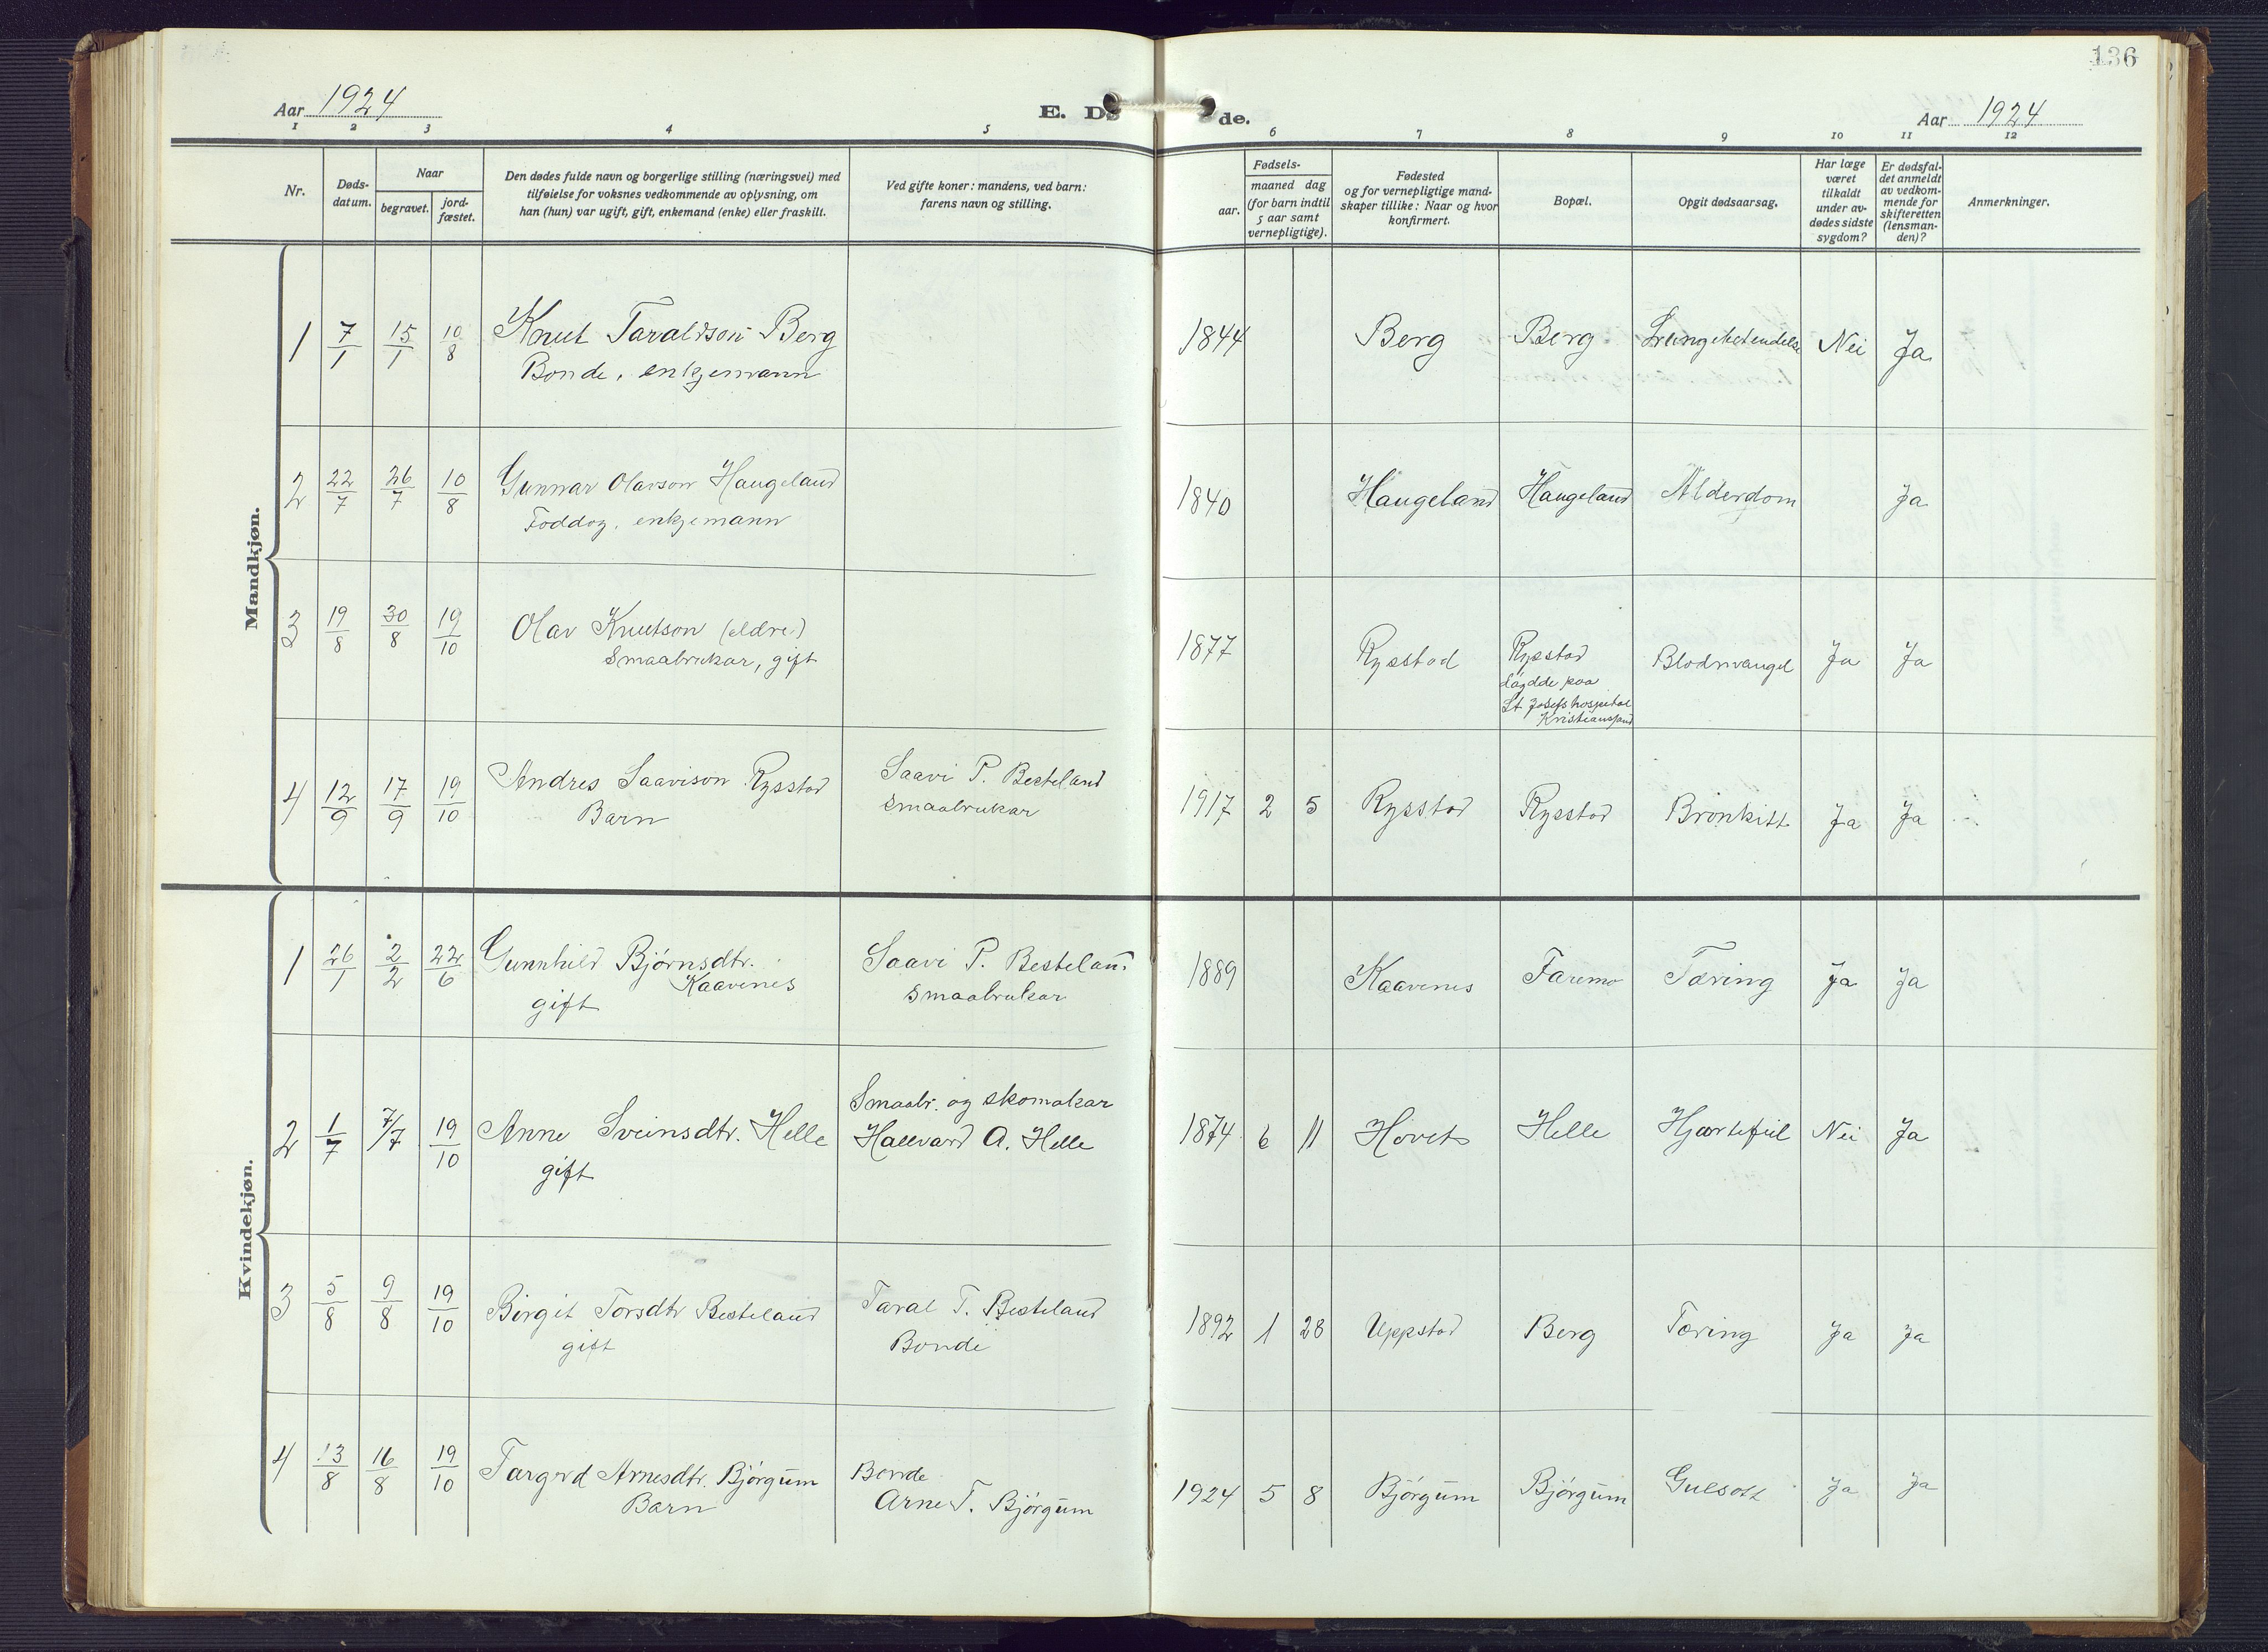 136
Aar 1924
E. Dø
de.
Aar 1924
1 2 3 4 5 6 7 8 9 10 11 12
Nr.
Døds-
datum.
Naar
begravet.
jord-
fæstet.
Den dødes fulde navn og borgerlige stilling (næringsvei) med
tilføielse for voksnes vedkommende av oplysning, om
han (hun) var ugift, gift, enkemand (enke) eller fraskilt.
Ved gifte koner: mandens, ved barn:
farens navn og stilling.
Fødsels-
aar.
maaned dag
(for barn indtil
5 aar samt
vernepligtige).
Fødested
og for vernepligtige mand-
skaper tillike: Naar og hvor
konfirmert.
Bopæl.
Opgit dødsaarsag.
Har læge
været
tilkaldt
under av-
dødes sidste
sygdom?
Er dødsfal-
det anmeldt
av vedkom-
mende for
skifteretten
(lensman-
den)?
Anmerkninger.
Mandkjøn.
1 7/1 15/1 10/8 Knut Taraldson Berg 1844 Berg Berg Lungebetendelse Nei Ja
Bonde, enkjemann
2 22/7 26/7 10/8 Gunnar Olavson Haugeland 1840 Haugeland Haugeland Alderdom Ja
Foddog, enkjemann
3 19/8 30/8 19/10 Olav Knutson (eldre) 1877 Rysstad Rysstad Blodmangel Ja Ja
Smaabrukar, gift
døydde paa
St Josefs hospital
Kristiansand
4 12/9 17/9 19/10 Andres Saavison Rysstad Saavi P. Besteland 1917 2 5 Rysstad Rysstad Bronkitt Ja Ja
Barn smaabrukar
Kvindekjøn.
1 26/1 2/2 22/6 Gunnhild Bjørnsdtr. Saavi P. Besteland 1889 Kaavenes Faremo Tæring Ja Ja
Kaavenes
gift smaabrukar
2 1/7 7/7 19/10 Anne Sveinsdtr. Helle Smaabr. og skomakar 1874 6 11 Hovet Helle Hjartefeil Nei Ja
gift Hallvard A. Helle
3 5/8 9/8 19/10 Birgit Torsdtr Besteland Taral T. Besteland 1892 1 28 Uppstad Berg Tæring Ja Ja
gift Bonde
4 13/8 16/8 19/10 Targerd Arnesdtr. Bjørgum Bonde 1924 5 8 Bjørgum Bjørgum Gulsott Ja Ja
Barn Arne T. Bjørgum